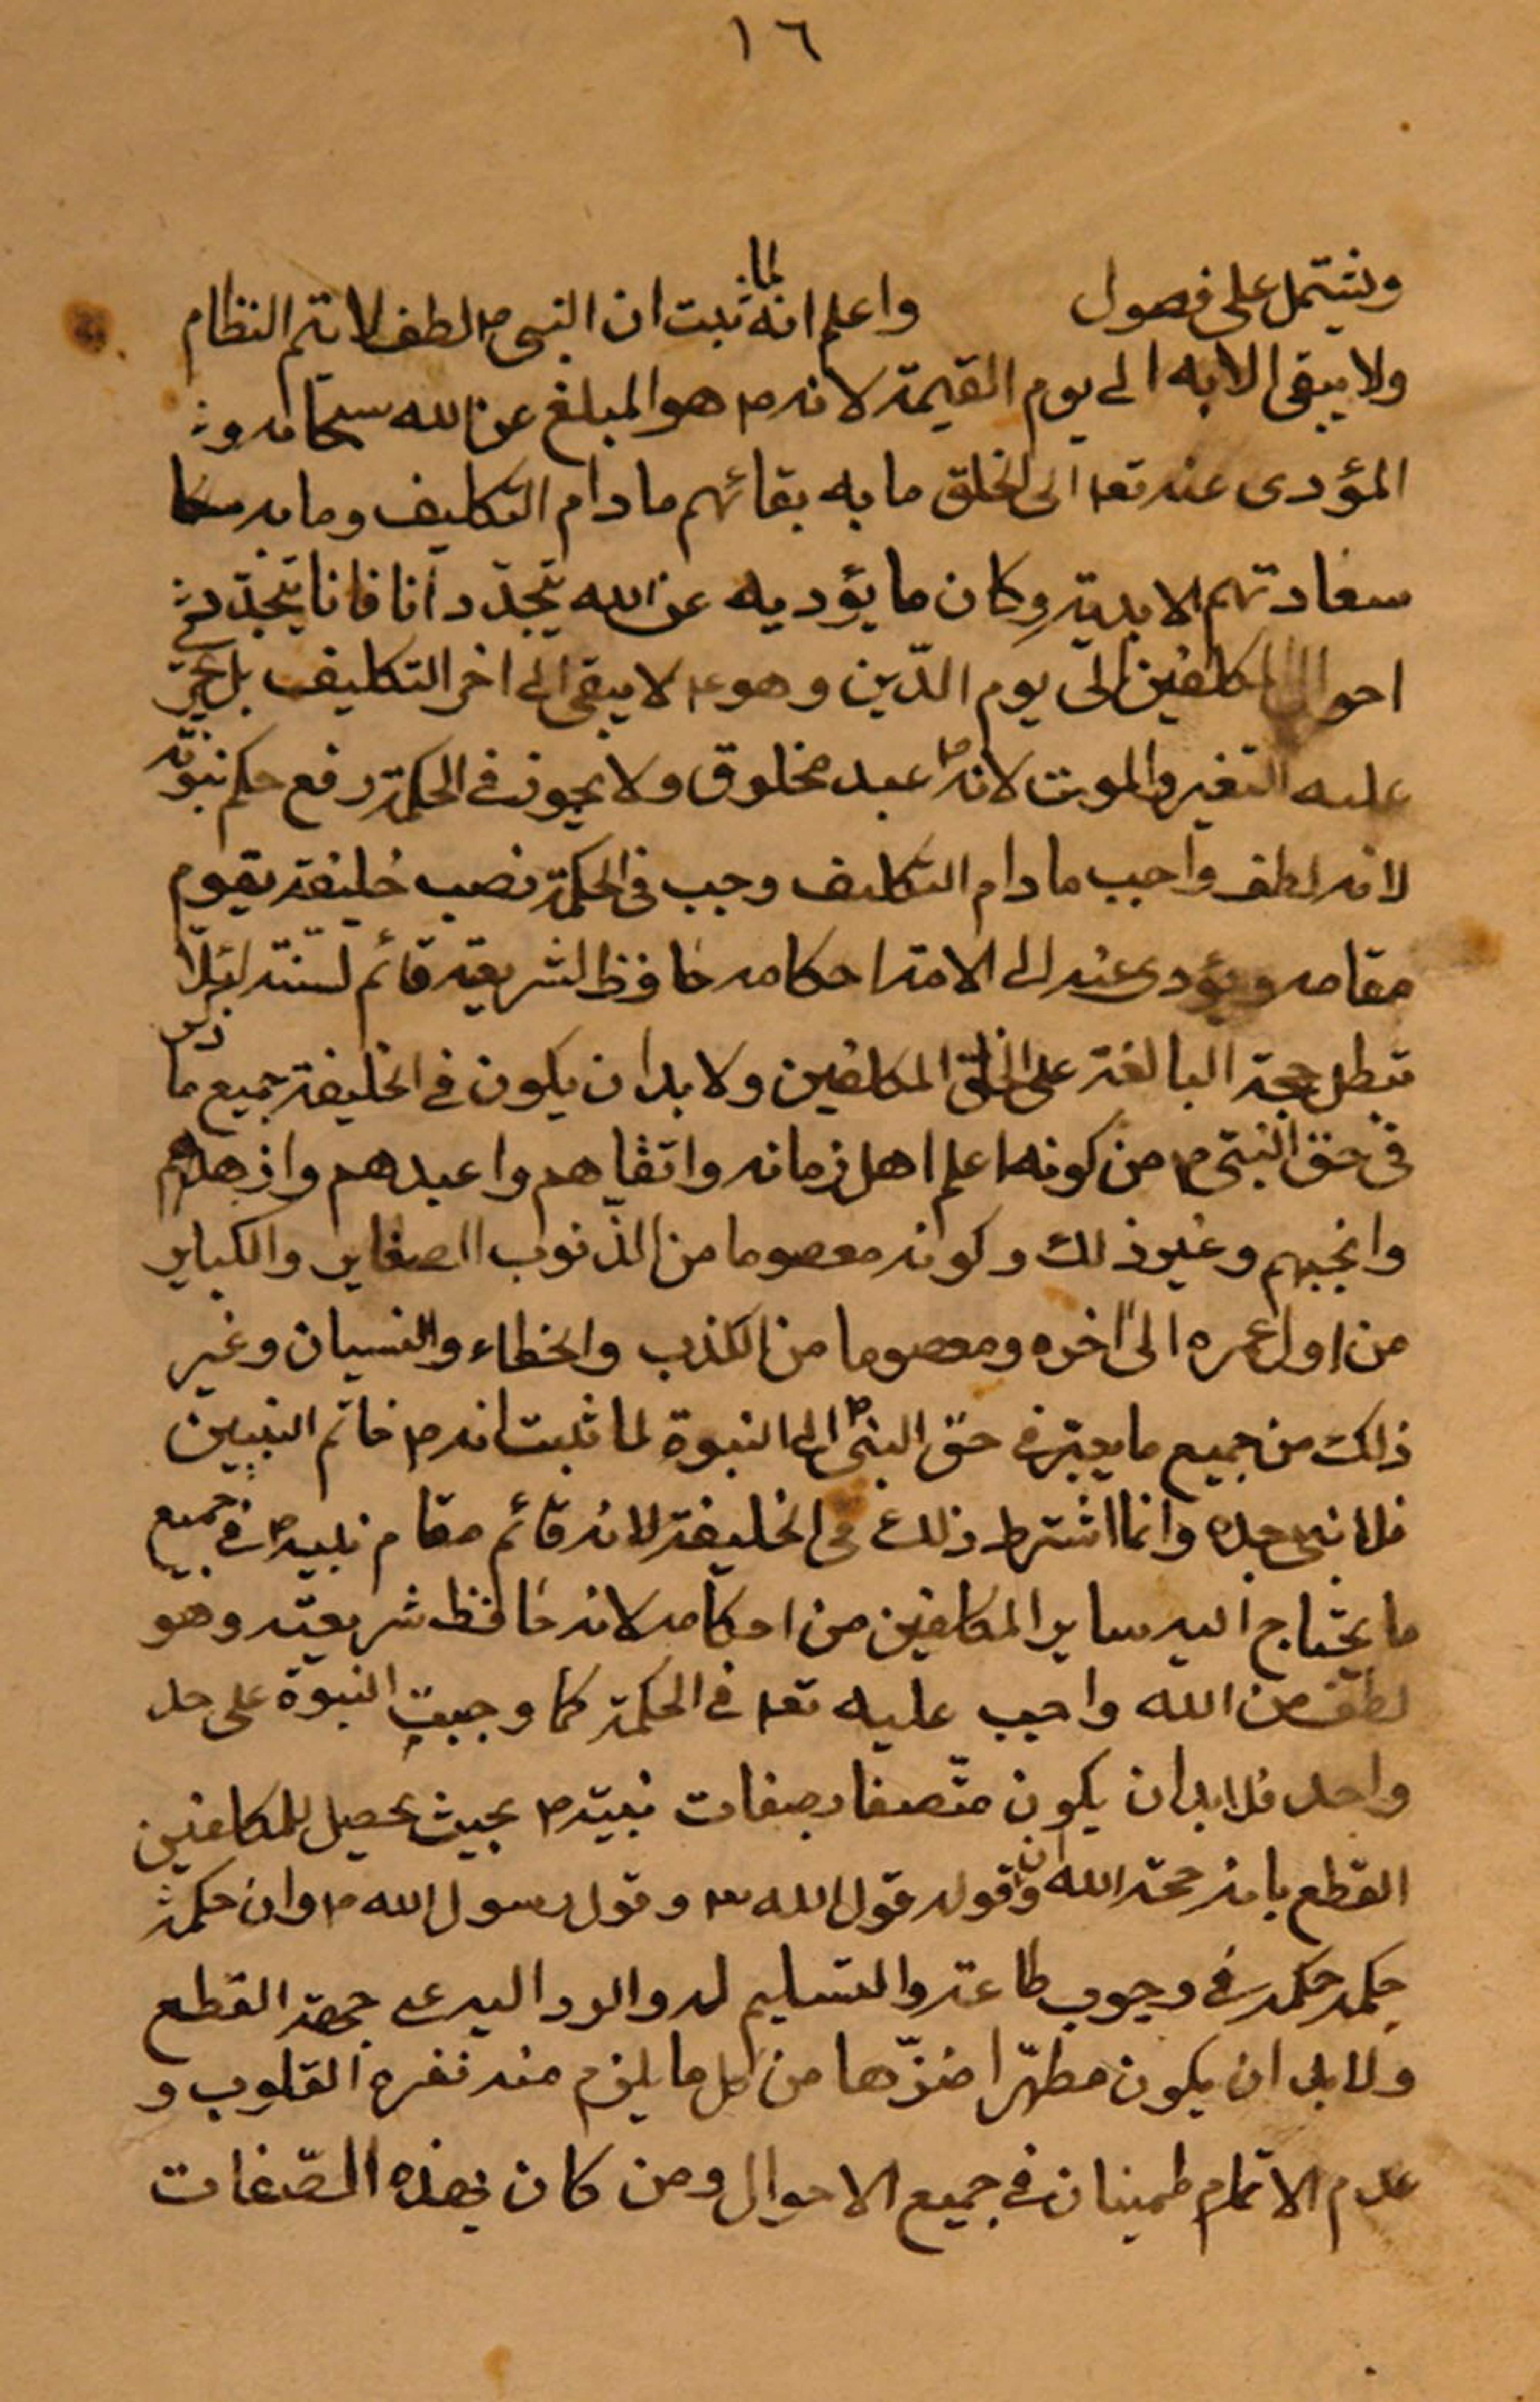 ١٦
ويشتمل على فصول واعلم انه لما ثبت ان النبي ص لطف لا يتم النظام
ولا يبقى الا به الى يوم القيمة لانه ص هو المبلغ عن الله سبحانه و
المؤدى عنه تعا الى الخلق ما به بقائهم ما دام التكليف وما به
سعادتهم الابدية وكان ما يؤديه عن الله يتجدّد آنا فانا يتجدّد في
احوال المكلفين الى يوم الدّين وهو ع لا يبقى الى اخر التكليف بل يجرى
عليه التغير والموت لانه ص عبد مخلوق ولا يجوز في الحكمة رفع حكم نبوته
لانه لطف واجب ما دام التكليف وجب في الحكمة نصب خليفة يقوم
مقامه ويؤدى عنه الى الامة احكامه حافظ لشريعته قائم لسنته لئلّا
تبطل حجة البالغة على الخلق المكلفين ولا بد ان يكون في الخليفة جميع ما ذكر
في حق النبي ص من كونه اعلم اهل زمانه واتقاهم واعبدهم وازهدهم
وانجبهم وغير ذلك وكونه معصوما من الذّنوب الصغاير والكباير
من اول عمره الى اخره ومعصوما من الكذب والخطاء والنسيان وغير
ذلك من جميع ما يعتبر في حق النبي ص الى النبوة لما ثبت انه ص خاتم النبيين
فلا نبي بعده وانما اشترط ذلك في الخليفة لانه قائم مقام نبيه ص في جميع
ما يحتاج اليه ساير المكلفين من احكامه لانه حافظ شريعته وهو
لطف من الله واجب عليه تعا في الحكمة كما وجبت النبوة على حد
واحد فلا بد ان يكون متّصفا بصفات نبيّه ص بحيث يحصل للمكلفين
القطع بانه حجة الله وان قوله قول الله تع وقول رسول الله ص وان حكمه
حكمه حكمه في وجوب طاعته والتسليم له والرد اليه على جهة القطع
ولا بد ان يكون مطهّرا منزّها من كل ما يلزم منه نفرة القلوب و
عدم الاتمام طمينان في جميع الاحوال ومن كان بهذه الصّفات